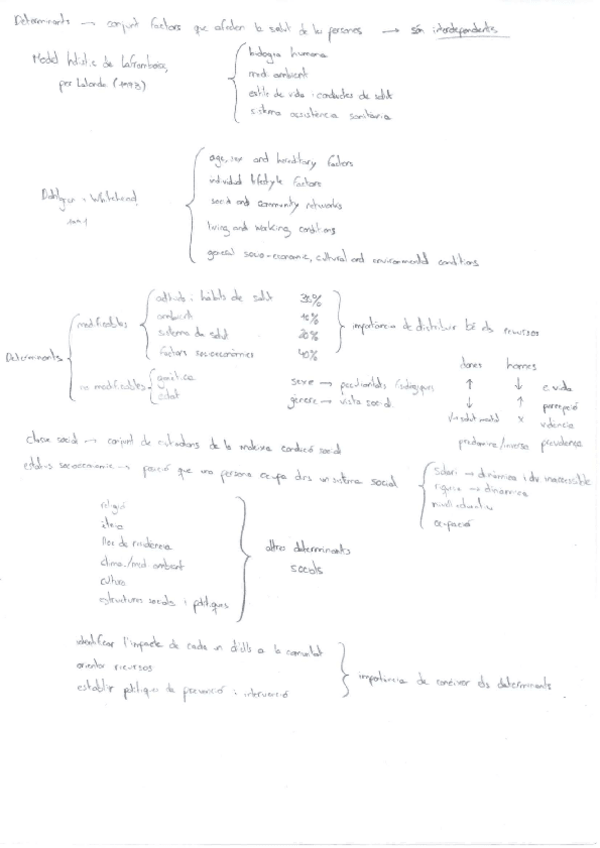 Determinants → conjunt factors que afecten la salut de les persones → són interdependents
Model holístic de Laframboise,
per Lalonde
biologia humana
medi ambient
estils de vida i conductes de salut
sistema assistència sanitària
Whitehead
age, sex and hereditary factors
individual lifestyle factors
social and community networks
living and working conditions
general socio-economic, cultural and environmental conditions
Determinants
modificables
hàbits de salut
ambient
sistema de salut 20%
factors socioeconòmics 40%
importància de distribuir bé els recursos
no modificables
genètica
edat
sexe →
gènere → vista social
dones homes
↑ ↓ e. vida
↓ ↑ percepció
x violència
predomini/inversa prevalença
classe social → conjunt de ciutadans de la mateixa condició social
estatus socioeconòmic → posició que una persona ocupa dins un sistema social
salari → dinàmica i
riquesa → dinàmica
nivell educatiu
ocupació
religió
ètnia
lloc de residència
clima/medi ambient
cultura
estructures socials i polítiques
altres determinants
socials
identificar l'impacte de cada un d'ells a la comunitat
orientar recursos
establir polítiques de prevenció i intervenció
importància de conèixer els determinants